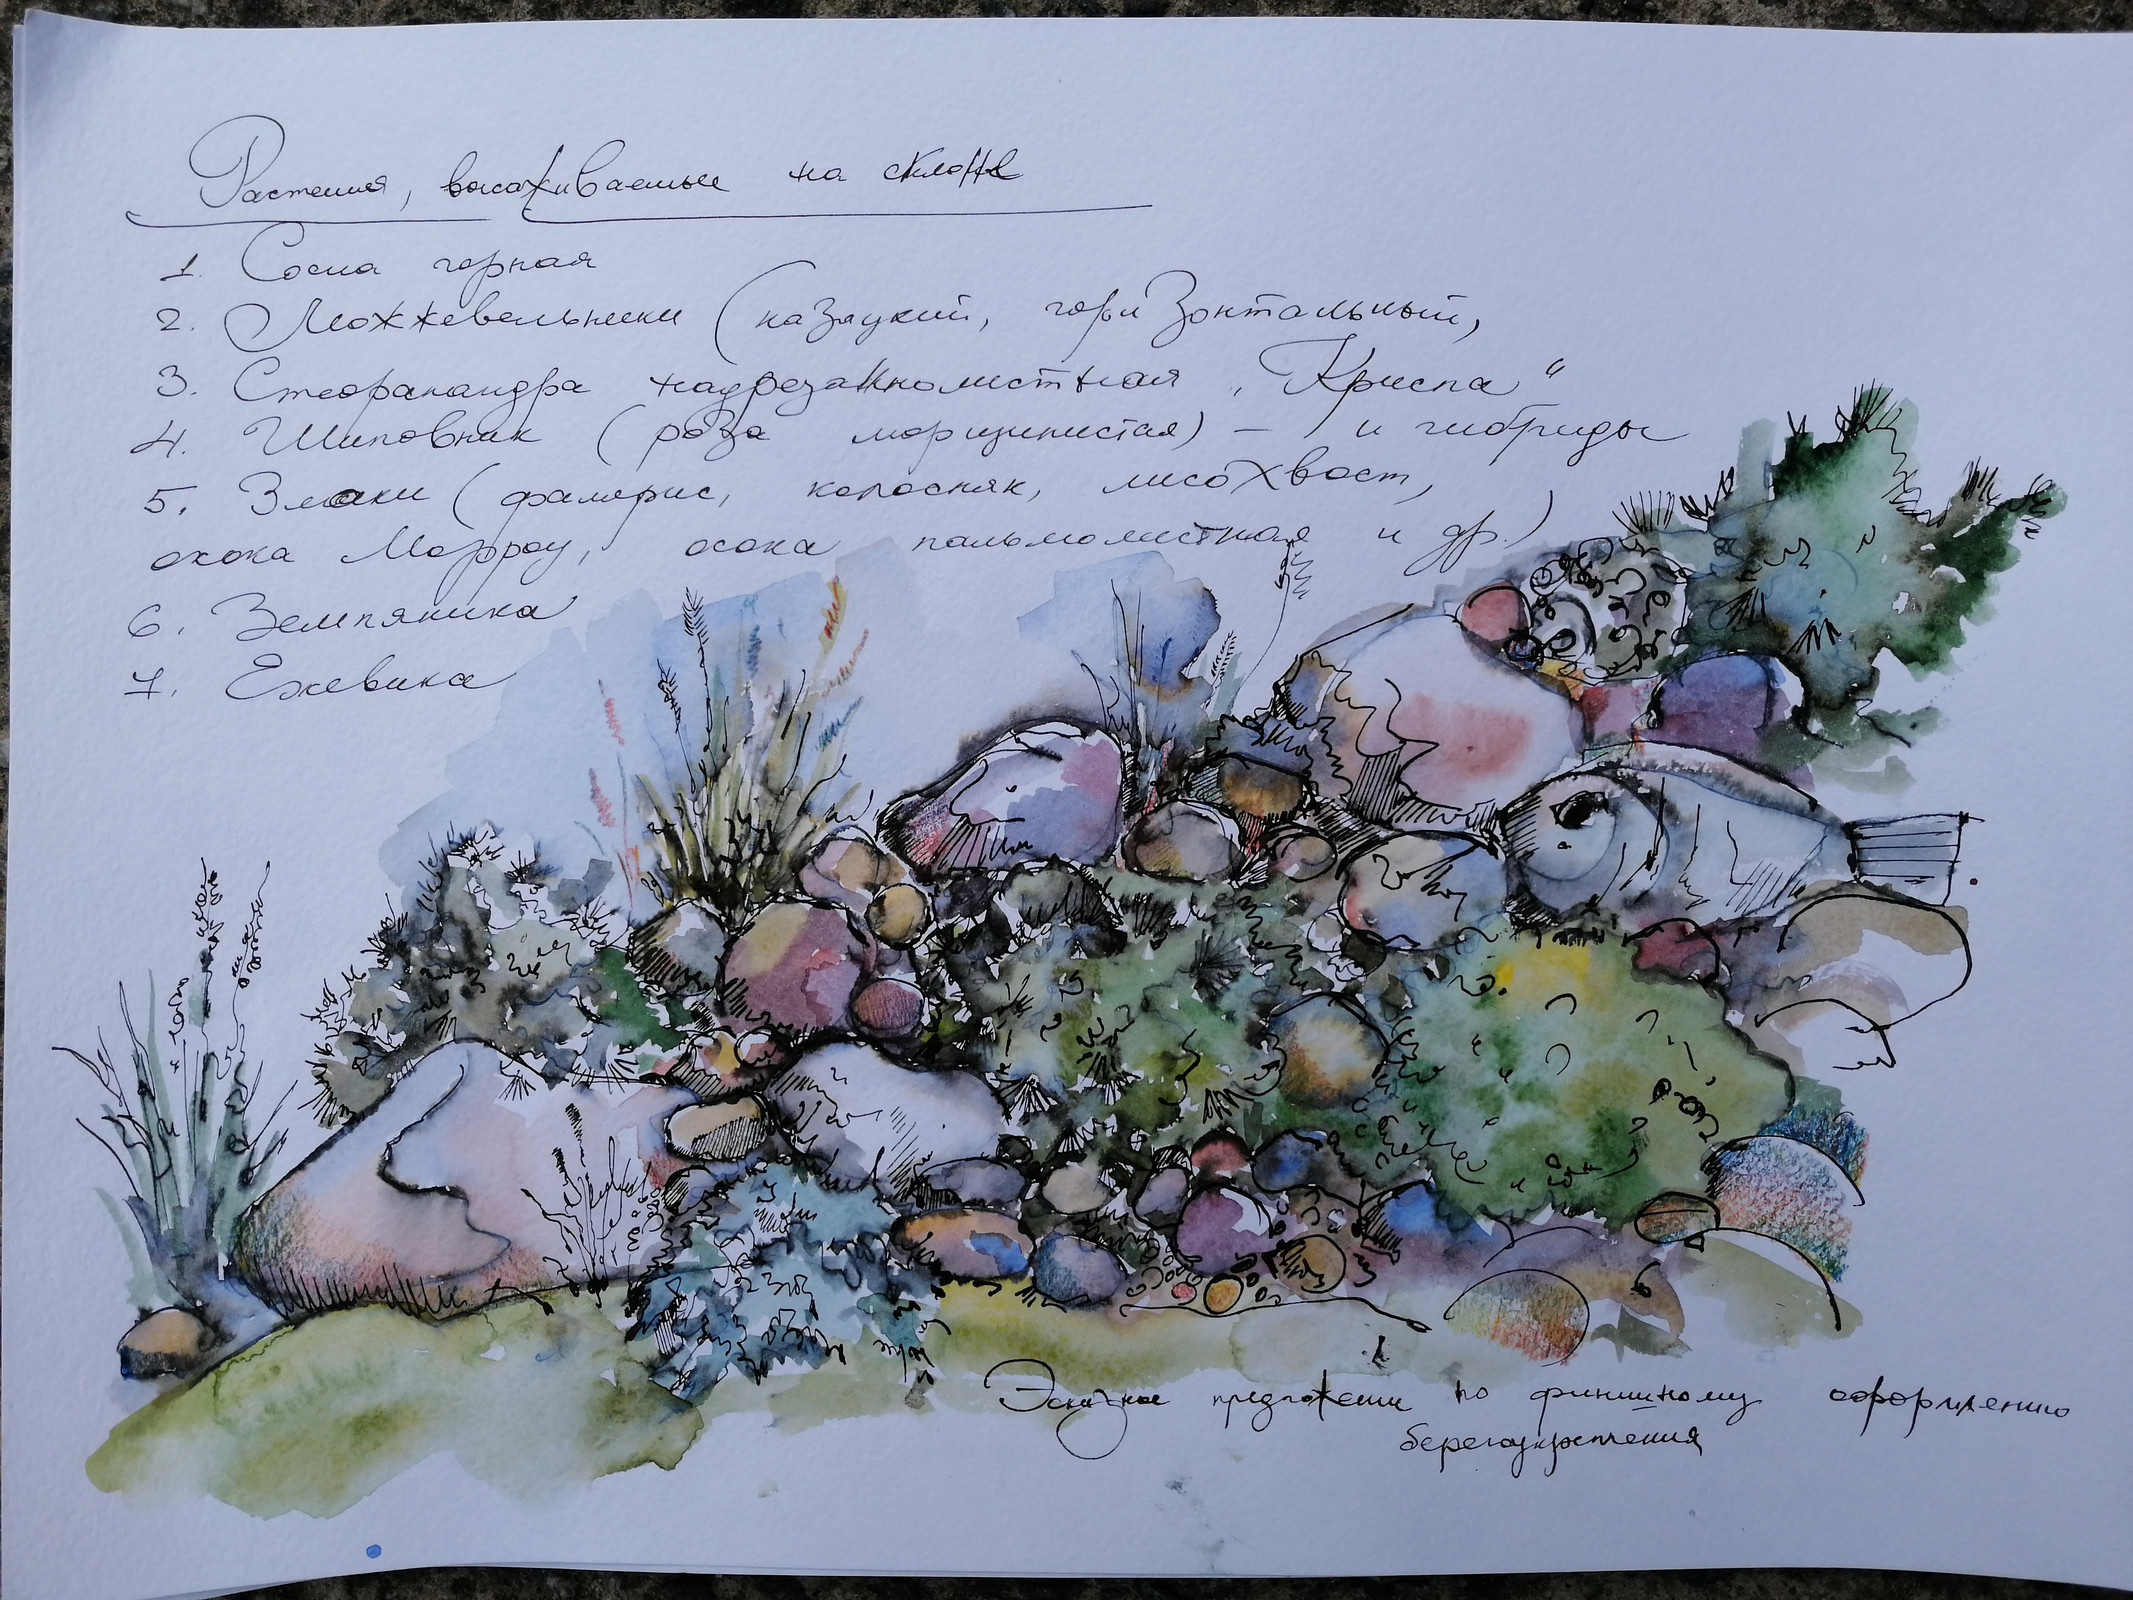 Растения, высаживаемые на склоне
1. Сосна горная
2. Можжевельники (казацкий, горизонтальный,
3. Стефанандра надрезаннолистная "Криспа"
4. Шиповник (роза морщинистая) – и гибриды
5. Злаки (фалярис, колосняк, лисохвост,
осока Морроу, осока пальмолистная и др.)
6. Земляника
7. Ежевика
Эскизное предложение по финишному оформлению
берегоукрепления